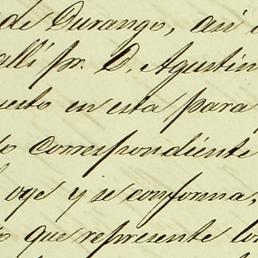 de Durango, así
allí pr. D. Agustin
uesto en esta para
o correspondiente
oge y se conforma,
o que represente lo